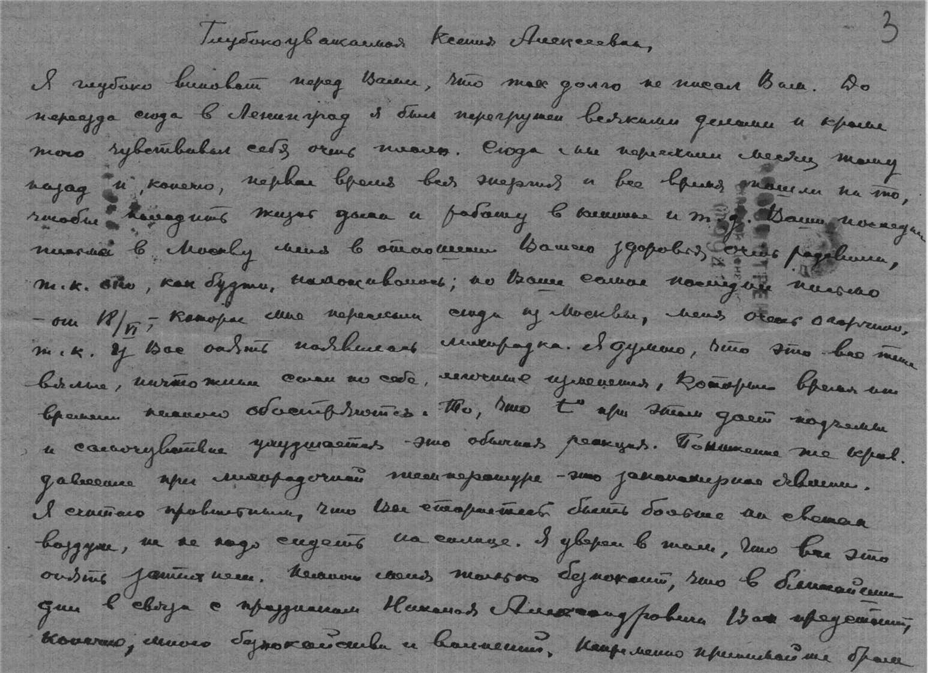 3
Глубокоуважаемая Ксения Алексеевна,
Я глубоко виноват перед Вами, что так долго не писал Вам. До
переезда сюда в Ленинград я был перегружен всякими делами и кроме
того чувствовал себя очень плохо. Сюда мы переехали месяц тому
назад и, конечно, первое время вся энергия и все время пошли на то,
чтобы наладить жизнь дома и работу в клинике и т.д. Ваши последние
письма в Москву меня в отношении Вашего здоровья очень радовали,
т.к. оно, как будто, налаживалось; но Ваше самое последнее письмо
- от 18/VI, которое мне переслали сюда из Москвы, меня очень огорчило,
т.к. у Вас опять появилась лихорадка. Я думаю, что это все те же
вялые, ничтожные сами по себе, легочные изменения, которые время от
времени немного обостряются. То, что t° при этом дает подъемы
и самочувствие ухудшается - это обычная реакция. Понижение же кров.
давления при лихорадочной температуре - это закономерное явление.
Я считаю правильным, что Вы стараетесь быть больше на свежем
воздухе, но не надо сидеть на солнце. Я уверен в том, что все это
опять затихнет. Немного меня только беспокоит, что в ближайшие
дни в связи с праздником Николая Александровича Вам предстоит,
конечно, много беспокойства и волнений. Непременно принимайте бром